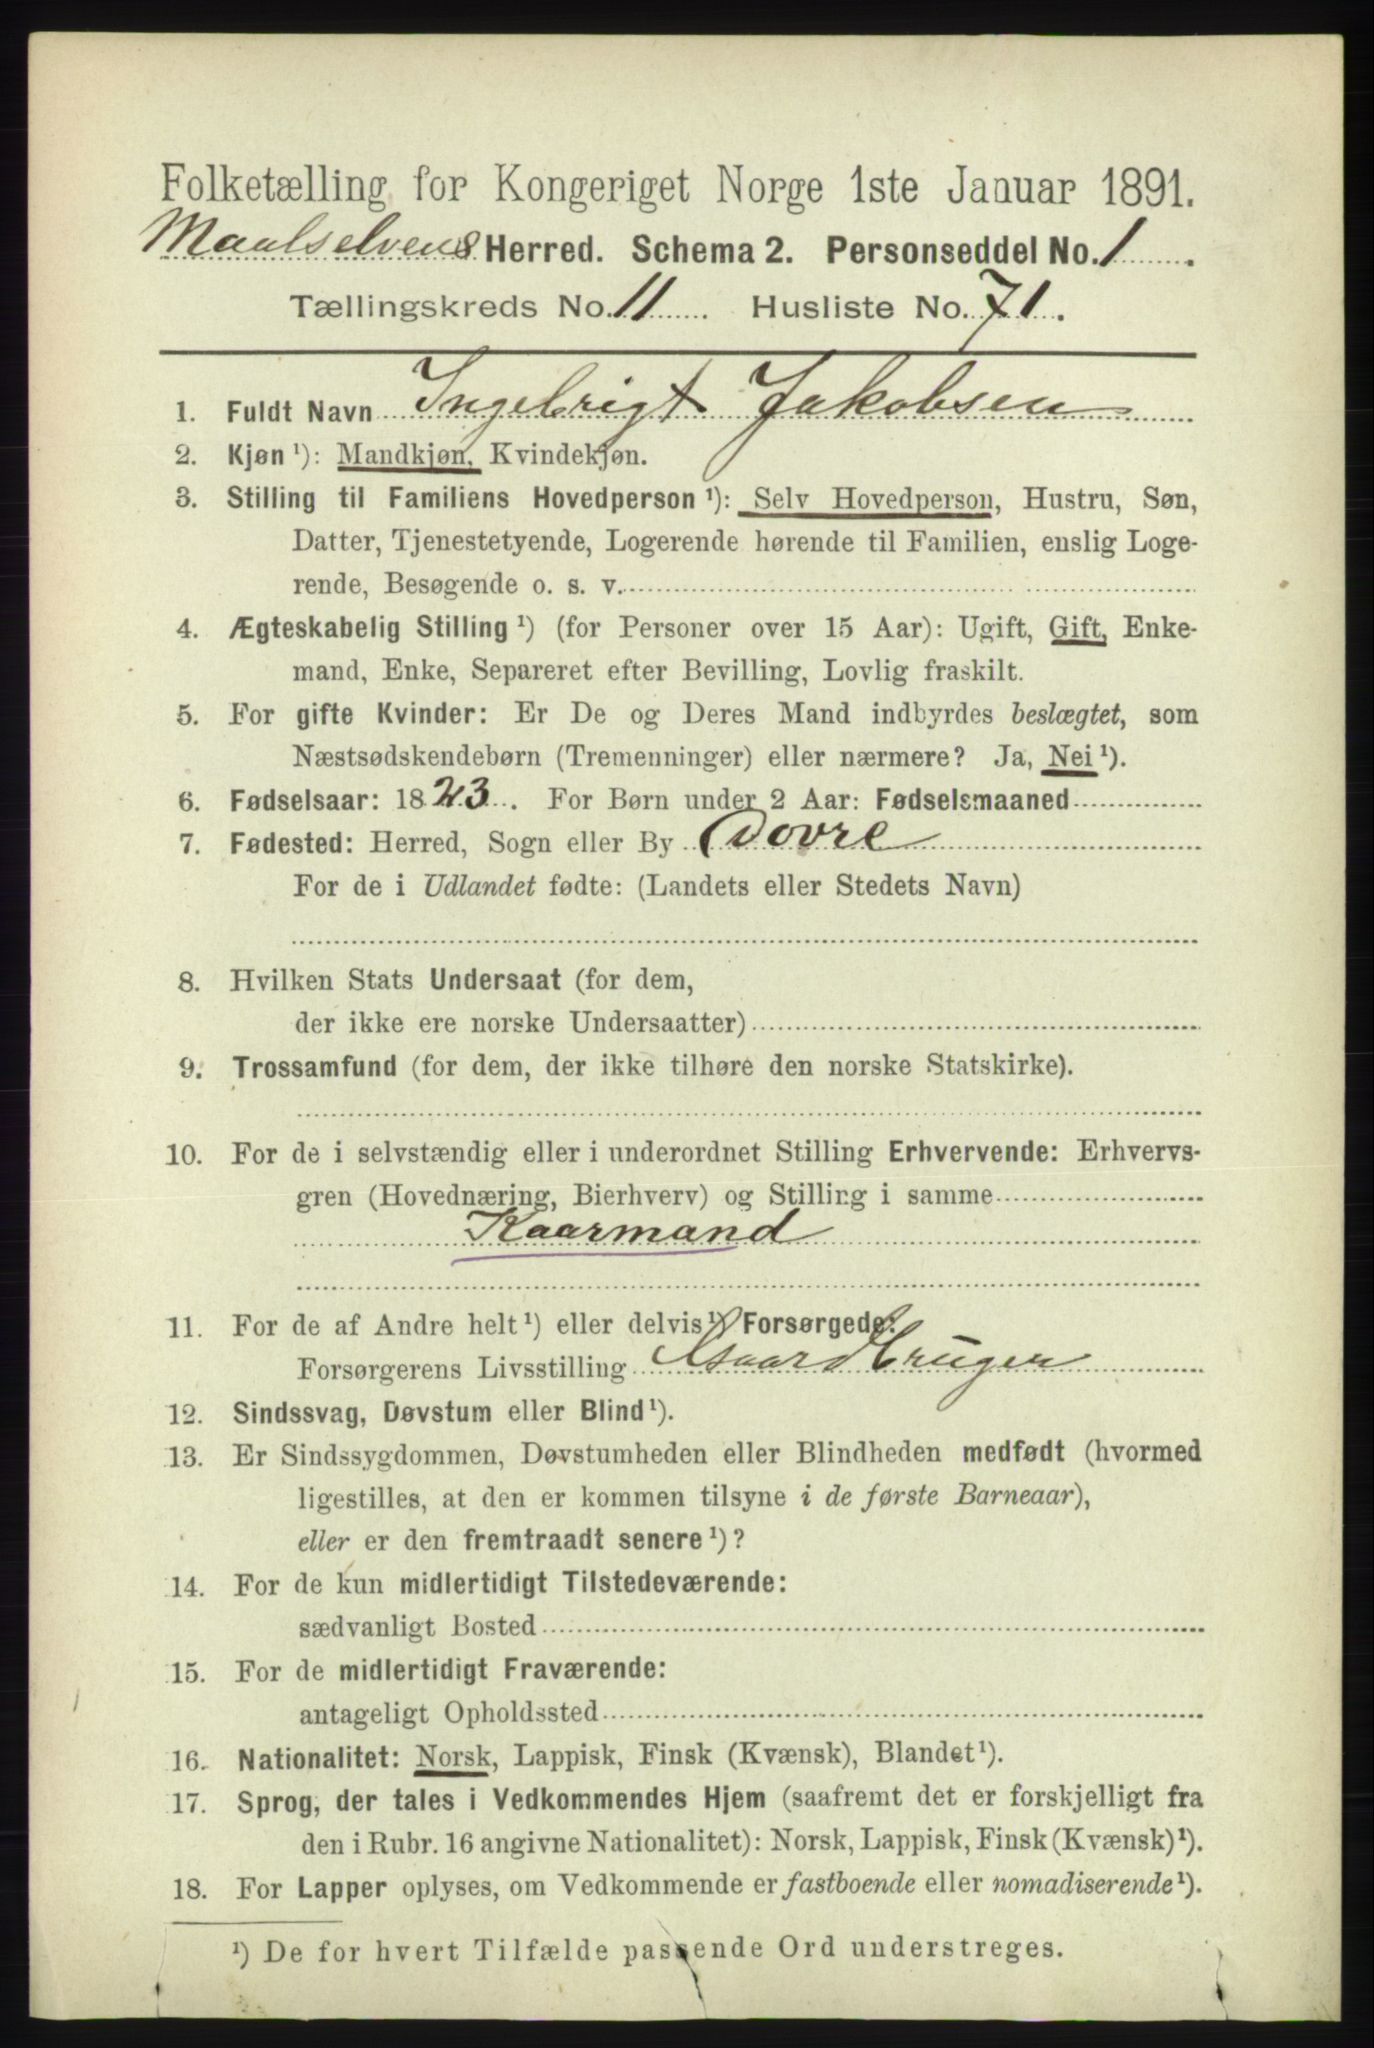 Folketælling for Kongeriget Norge 1ste Januar 1891.
Maalselvens Herred. Schema 2. Personseddel No. 1
Tællingskreds No. 11 Husliste No. 71.
1. Fuldt Navn Ingebrigt Jakobsen
2. Kjøn ¹): Mandkjøn, Kvindekjøn.
3. Stilling til Familiens Hovedperson ¹): Selv Hovedperson, Hustru, Søn,
Datter, Tjenestetyende, Logerende hørende til Familien, enslig Loge-
rende, Besøgende o. s. v.
4. Ægteskabelig Stilling ¹) (for Personer over 15 Aar): Ugift, Gift, Enke-
mand, Enke, Separeret efter Bevilling, Lovlig fraskilt.
5. For gifte Kvinder: Er De og Deres Mand indbyrdes beslægtet, som
Næstsødskendebørn (Tremenninger) eller nærmere? Ja, Nei ¹).
6. Fødselsaar: 1823. For Børn under 2 Aar: Fødselsmaaned
7. Fødested: Herred, Sogn eller By Dovre
For de i Udlandet fødte: (Landets eller Stedets Navn)
8. Hvilken Stats Undersaat (for dem,
der ikke ere norske Undersaatter)
9. Trossamfund (for dem, der ikke tilhøre den norske Statskirke).
10. For de i selvstændig eller i underordnet Stilling Erhvervende: Erhvervs-
gren (Hovednæring, Bierhverv) og Stilling i samme
Kaarmand
11. For de af Andre helt ¹) eller delvis ¹) Forsørgede:
Forsørgerens Livsstilling Gaardbruger
12. Sindssvag, Døvstum eller Blind ¹).
13. Er Sindssygdommen, Døvstumheden eller Blindheden medfødt (hvormed
ligestilles, at den er kommen tilsyne i de første Barneaar),
eller er den fremtraadt senere ¹)?
14. For de kun midlertidigt Tilstedeværende:
sædvanligt Bosted
15. For de midlertidigt Fraværende:
antageligt Opholdssted
16. Nationalitet: Norsk, Lappisk, Finsk (Kvænsk), Blandet ¹).
17. Sprog, der tales i Vedkommendes Hjem (saafremt det er forskjelligt fra
den i Rubr. 16 angivne Nationalitet): Norsk, Lappisk, Finsk (Kvænsk) ¹).
18. For Lapper oplyses, om Vedkommende er fastboende eller nomadiserende ¹).
¹) De for hvert Tilfælde passende Ord understreges.